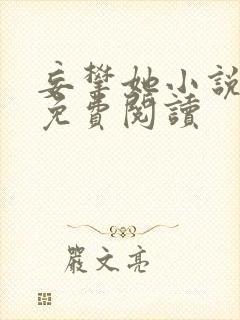 妄攀她小說
免費閱讀
嚴文亮